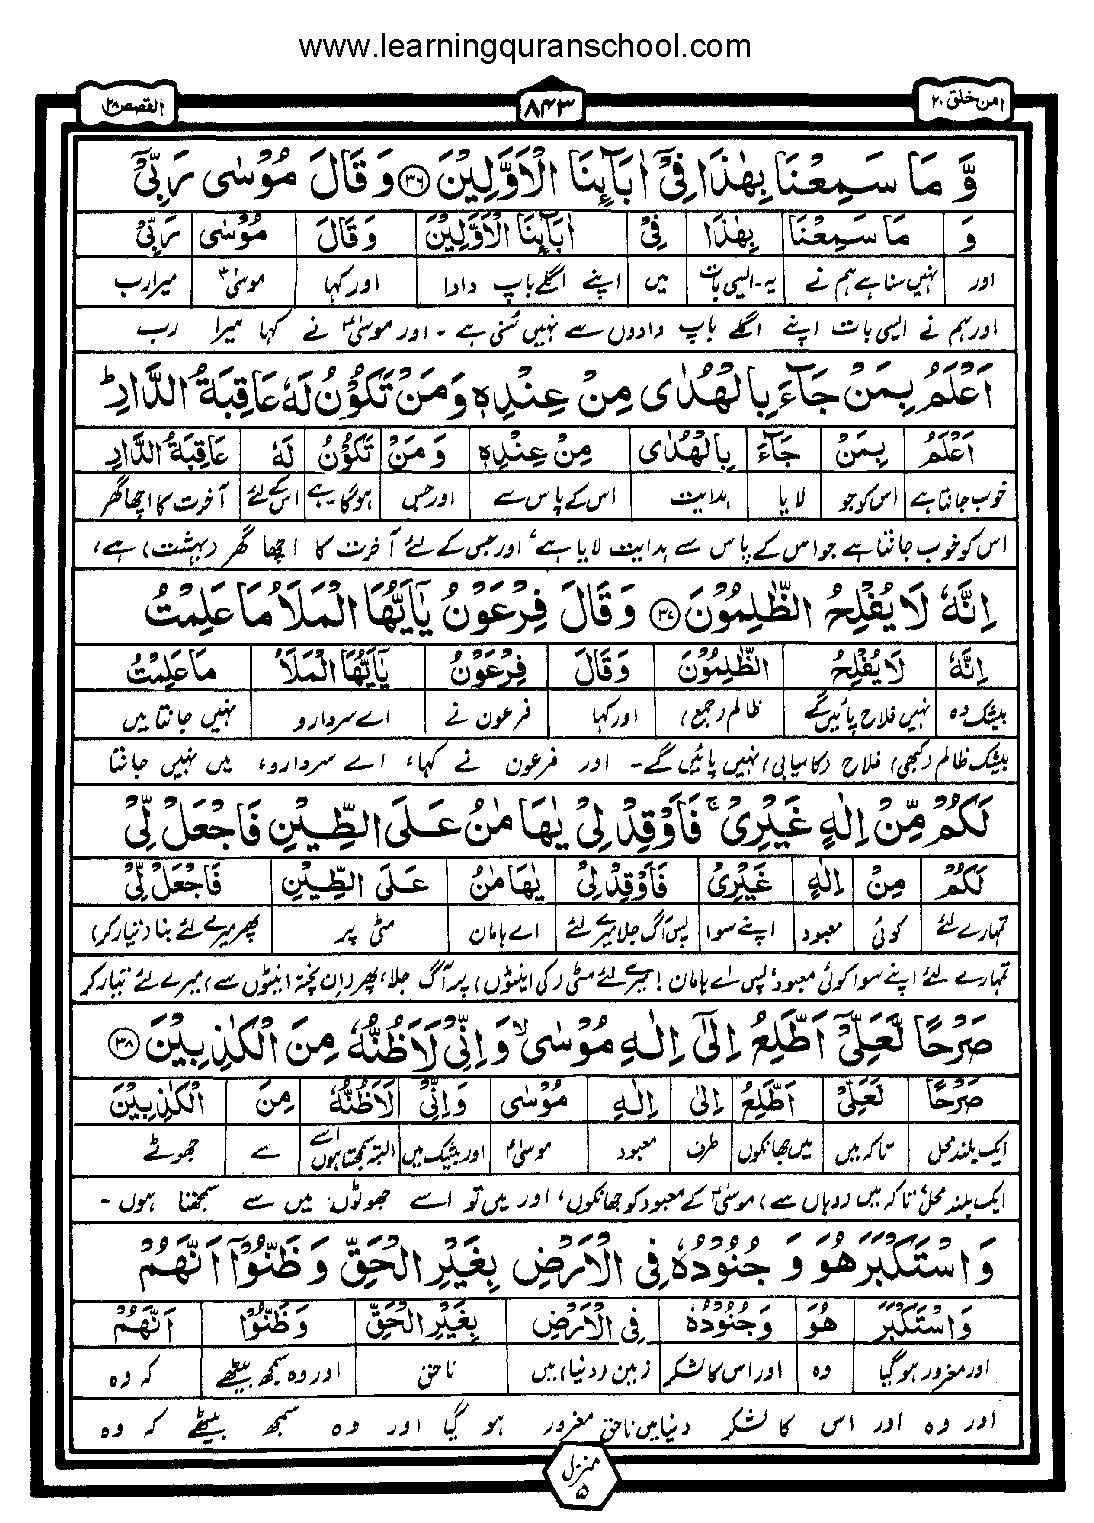 www.learningquranschool.com
امن خلق ۲۰
۸۴۳
القصص ۲۸
وَّ مَا سَمِعْنَا بِهٰذَا فِیْۤ اٰبَآىِٕنَا الْاَوَّلِیْنَ ۝۳۶ وَ قَالَ مُوْسٰى رَبِّیْۤ
وَ مَا سَمِعْنَا بِهٰذَا فِیْ اٰبَآىِٕنَا الْاَوَّلِیْنَ وَ قَالَ مُوْسٰى رَبِّیْ
اور نہیں سنا ہے ہم نے یہ۔ایسی بات میں اپنے اگلے باپ دادا اور کہا موسیٰؑ میرا رب
اور ہم نے ایسی بات اپنے اگلے باپ دادوں سے نہیں سُنی ہے ۔ اور موسیٰؑ نے کہا میرا رب
اَعْلَمُ بِمَنْ جَآءَ بِالْهُدٰى مِنْ عِنْدِهٖ وَ مَنْ تَكُوْنُ لَهٗ عَاقِبَةُ الدَّارِؕ
اَعْلَمُ بِمَنْ جَآءَ بِالْهُدٰى مِنْ عِنْدِهٖ وَ مَنْ تَكُوْنُ لَهٗ عَاقِبَةُ الدَّارِ
خوب جانتا ہے اس کو جو لایا ہدایت اس کے پاس سے اور جس ہوگا۔ہے اس کے لئے آخرت کا اچھا گھر
اس کو خوب جانتا ہے جو اس کے پاس سے ہدایت لایا ہے، اور جس کے لئے آخرت کا اچھا گھر (بہشت) ہے،
اِنَّهٗ لَا یُفْلِحُ الظّٰلِمُوْنَ ۝۳۷ وَ قَالَ فِرْعَوْنُ یٰۤاَیُّهَا الْمَلَاُ مَا عَلِمْتُ
اِنَّهٗ لَا یُفْلِحُ الظّٰلِمُوْنَ وَ قَالَ فِرْعَوْنُ یٰۤاَیُّهَا الْمَلَاُ مَا عَلِمْتُ
بیشک وہ نہیں فلاح پائیں گے ظالم (جمع) اور کہا فرعون نے اے سردارو نہیں جانتا میں
بیشک ظالم (کبھی) فلاح (کامیابی) نہیں پائیں گے۔ اور فرعون نے کہا، اے سردارو، میں نہیں جانتا
لَكُمْ مِّنْ اِلٰهٍ غَیْرِیْۚ فَاَوْقِدْ لِیْ یٰهَامٰنُ عَلَى الطِّیْنِ فَاجْعَلْ لِّیْ
لَكُمْ مِنْ اِلٰهٍ غَیْرِیْ فَاَوْقِدْ لِیْ یٰهَامٰنُ عَلَى الطِّیْنِ فَاجْعَلْ لِّیْ
تمہارے لئے کوئی معبود اپنے سوا پس آگ جلا میرے لئے اے ہامان مٹی پر پھر میرے لئے بنا (تیار کر)
تمہارے لئے اپنے سوا کوئی معبود، پس اے ہامان! میرے لئے مٹی (کی اینٹوں) پر آگ جلا، پھر (ان پختہ اینٹوں سے) میرے لئے تیار کر
صَرْحًا لَّعَلِّیْۤ اَطَّلِعُ اِلٰۤى اِلٰهِ مُوْسٰىۙ وَ اِنِّیْ لَاَظُنُّهٗ مِنَ الْكٰذِبِیْنَ ۝۳۸
صَرْحًا لَعَلِّیْ اَطَّلِعُ اِلٰى اِلٰهِ مُوْسٰى وَ اِنِّیْ لَاَظُنُّهٗ مِنَ الْكٰذِبِیْنَ
ایک بلند محل تاکہ میں میں جھانکوں طرف معبود موسیٰؑ اور بیشک میں البتہ سمجھتا ہوں اسے سے جھوٹے
ایک بلند محل، تاکہ میں (وہاں سے) موسیٰؑ کے معبود کو جھانکوں، اور میں تو اسے جھوٹوں میں سے سمجھتا ہوں ۔
وَ اسْتَكْبَرَ هُوَ وَ جُنُوْدُهٗ فِی الْاَرْضِ بِغَیْرِ الْحَقِّ وَ ظَنُّوْۤا اَنَّهُمْ
وَ اسْتَكْبَرَ هُوَ وَ جُنُوْدُهٗ فِی الْاَرْضِ بِغَیْرِ الْحَقِّ وَ ظَنُّوْا اَنَّهُمْ
اور مغرور ہو گیا وہ اور اس کا لشکر زمین (دنیا) میں ناحق اور وہ سمجھ بیٹھے کہ وہ
اور وہ اور اس کا لشکر دنیا میں ناحق مغرور ہو گیا اور وہ سمجھ بیٹھے کہ وہ
منزل
۵